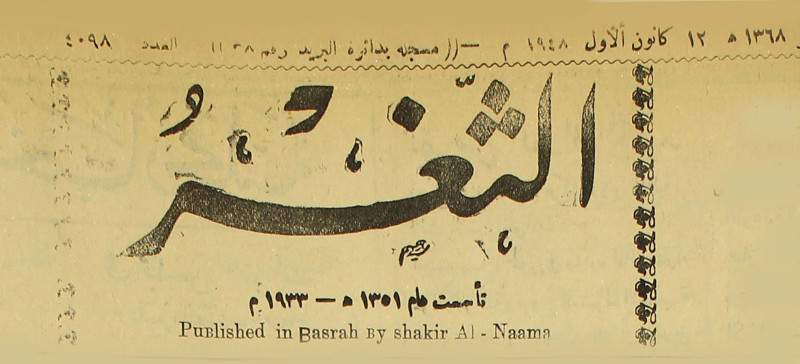 ١٣٦٨ ه ١٢ كانون الاول ١٩٤٨ م —(( مسجله بدائرة البريد رقم العدد ٤٠٩٨
الثغر
تأسست عام ١٣٥١ ه — ١٩٣٣ م
Published in Basrah By shakir Al - Naama